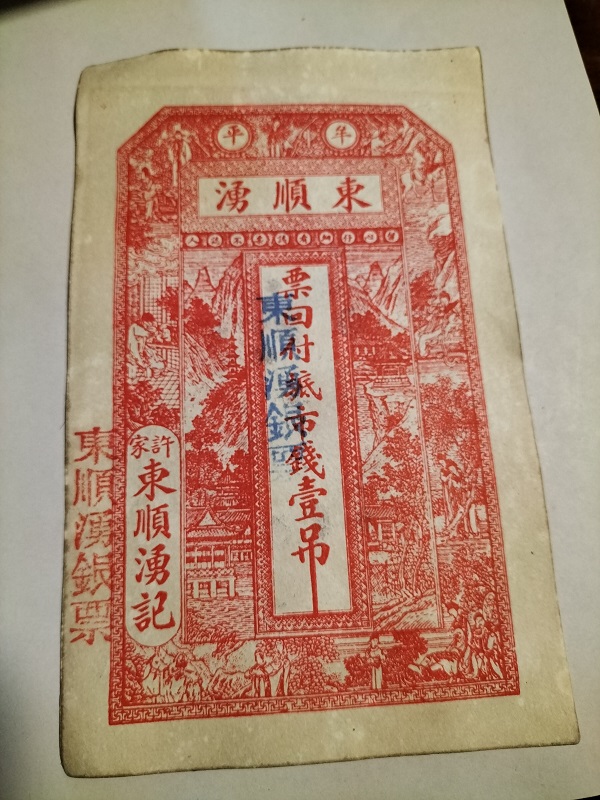 牟平
東順湧
票回付市錢壹吊
東順湧銀票
許家
東順湧記
東順湧銀票